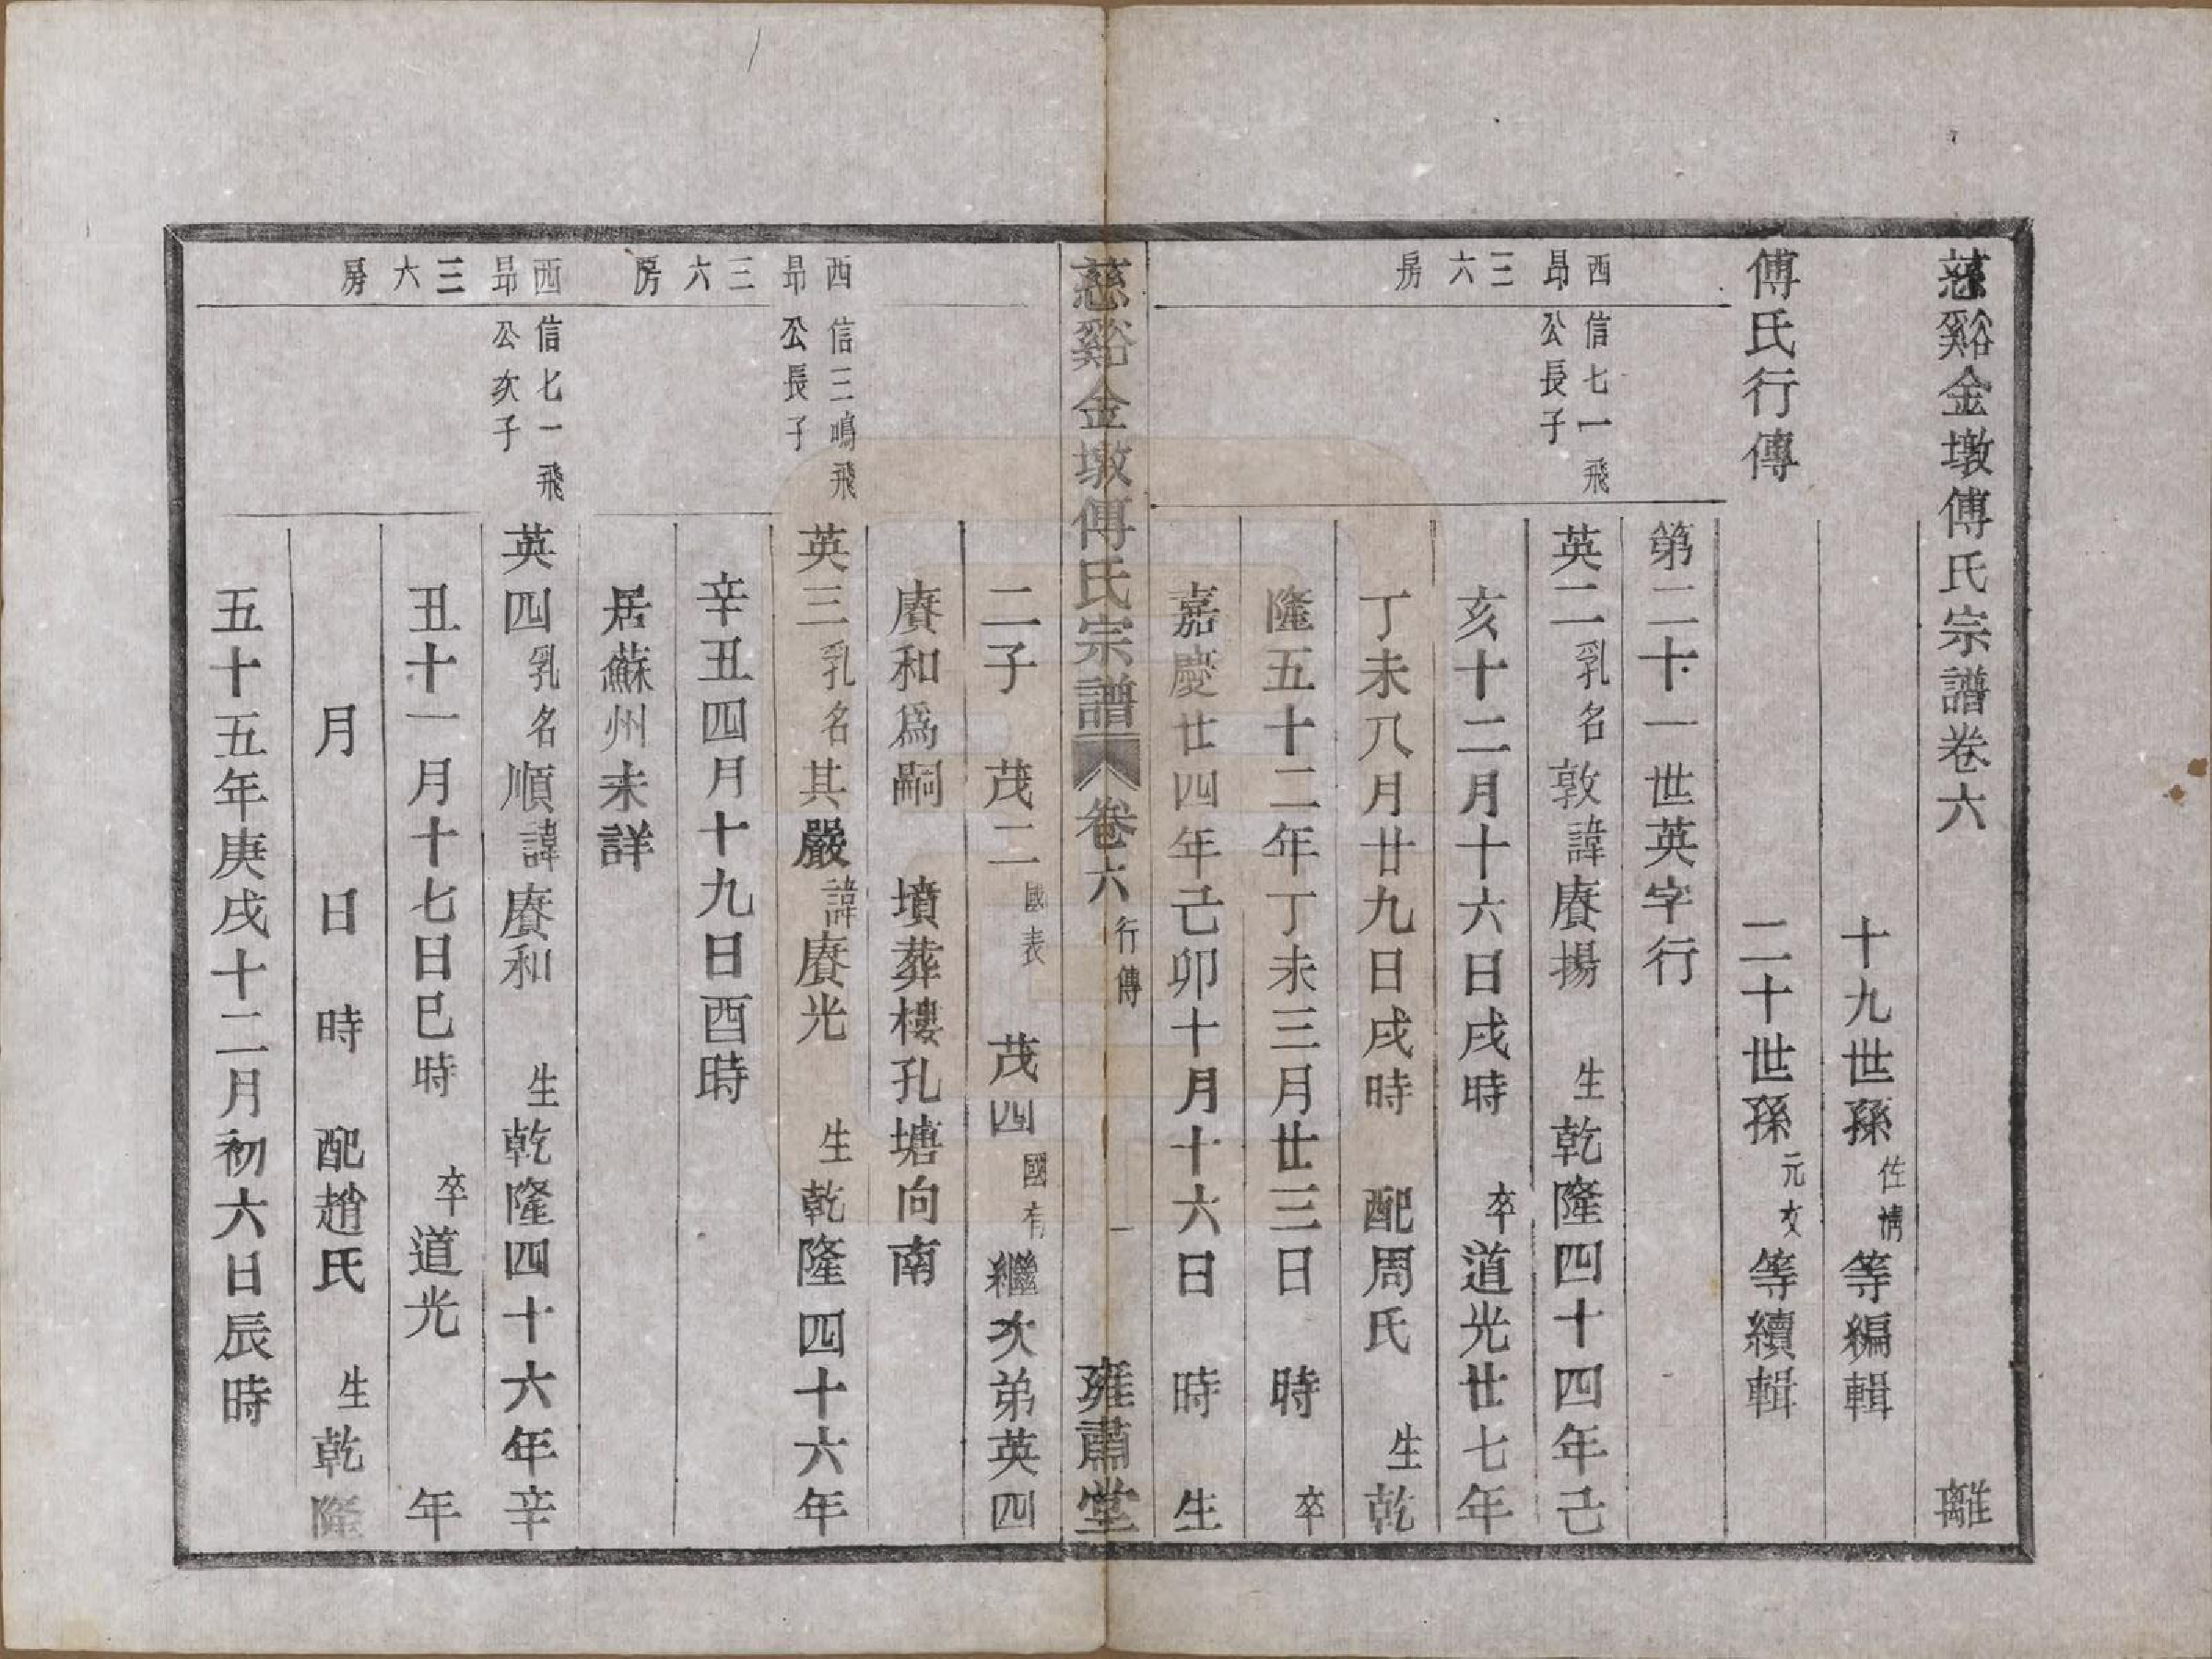 慈谿金墩傅氏宗譜卷六　離
十九世孫佐情等編輯
傅氏行傳　二十世孫元文等續輯
第二十一世英字行
西昂三六房
信七一飛公長子
英二乳名敦諱賡揚　生乾隆四十四年己
亥十二月十六日戌時　卒道光廿七年
丁未八月廿九日戌時　配周氏　生乾
隆五十二年丁未三月廿三日　時　卒
嘉慶廿四年己卯十月十六日　時　生
慈谿金墩傅氏宗譜　卷六　行傳　一　雍肅堂
二子　茂二國表　茂四國有繼次弟英四
賡和爲嗣　墳葬樓孔塘向南
西昂三六房
信三鳴飛公長子
英三乳名其嚴諱賡光　生乾隆四十六年
辛丑四月十九日酉時
居蘇州未詳
西昂三六房
信七一飛公次子
英四乳名順諱賡和　生乾隆四十六年辛
丑十一月十七日巳時　卒道光　年
月　日　時　配趙氏　生乾隆
五十五年庚戌十二月初六日辰時